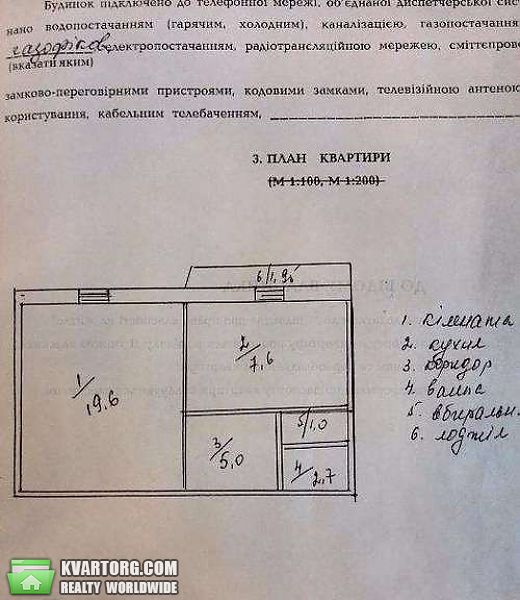 Будинок підключено до телефонної мережі, об'єднаної диспетчерської сис
нано водопостачанням (гарячим, холодним), каналізацією, газопостачання
газофіков. електропостачанням, радіотрансляційною мережею, сміттєпрово
(вказати яким)
замково-переговірними пристроями, кодовими замками, телевізійною антеною
користування, кабельним телебаченням,
3. ПЛАН КВАРТИРИ
(М 1:100, М 1:200)
6/1,9
2/7,6
1/19,6
5/1,0
3/5,0
4/2,7
1. кімната
2. кухня
3. коридор
4. ванна
5. вбиральн.
6. лоджія
KVARTORG.COM
REALTY WORLDWIDE